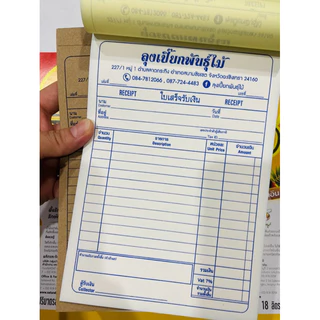 ลุงเปี๊ยกพันธุ์ไม้
227/1 หมู่ 1 ตำบลหาดกระทิง อำเภอสนามชัยเขต จังหวัดฉะเชิงเทรา 24160
084-7812066 , 087-724-4483 ลุงเปี๊ยกพันธุ์ไม้
เล่มที่ เลขที่
RECEIPT ใบเสร็จรับเงิน RECEIPT
นาม วันที่
Customer Date
ที่อยู่
Tax ID
จำนวน รายการ หน่วยละ จำนวนเงิน
Quantity Description Unit Price Amount
รวมเงิน
Vat 7%
รวมทั้งสิ้น
ผู้รับเงิน
Collector
18